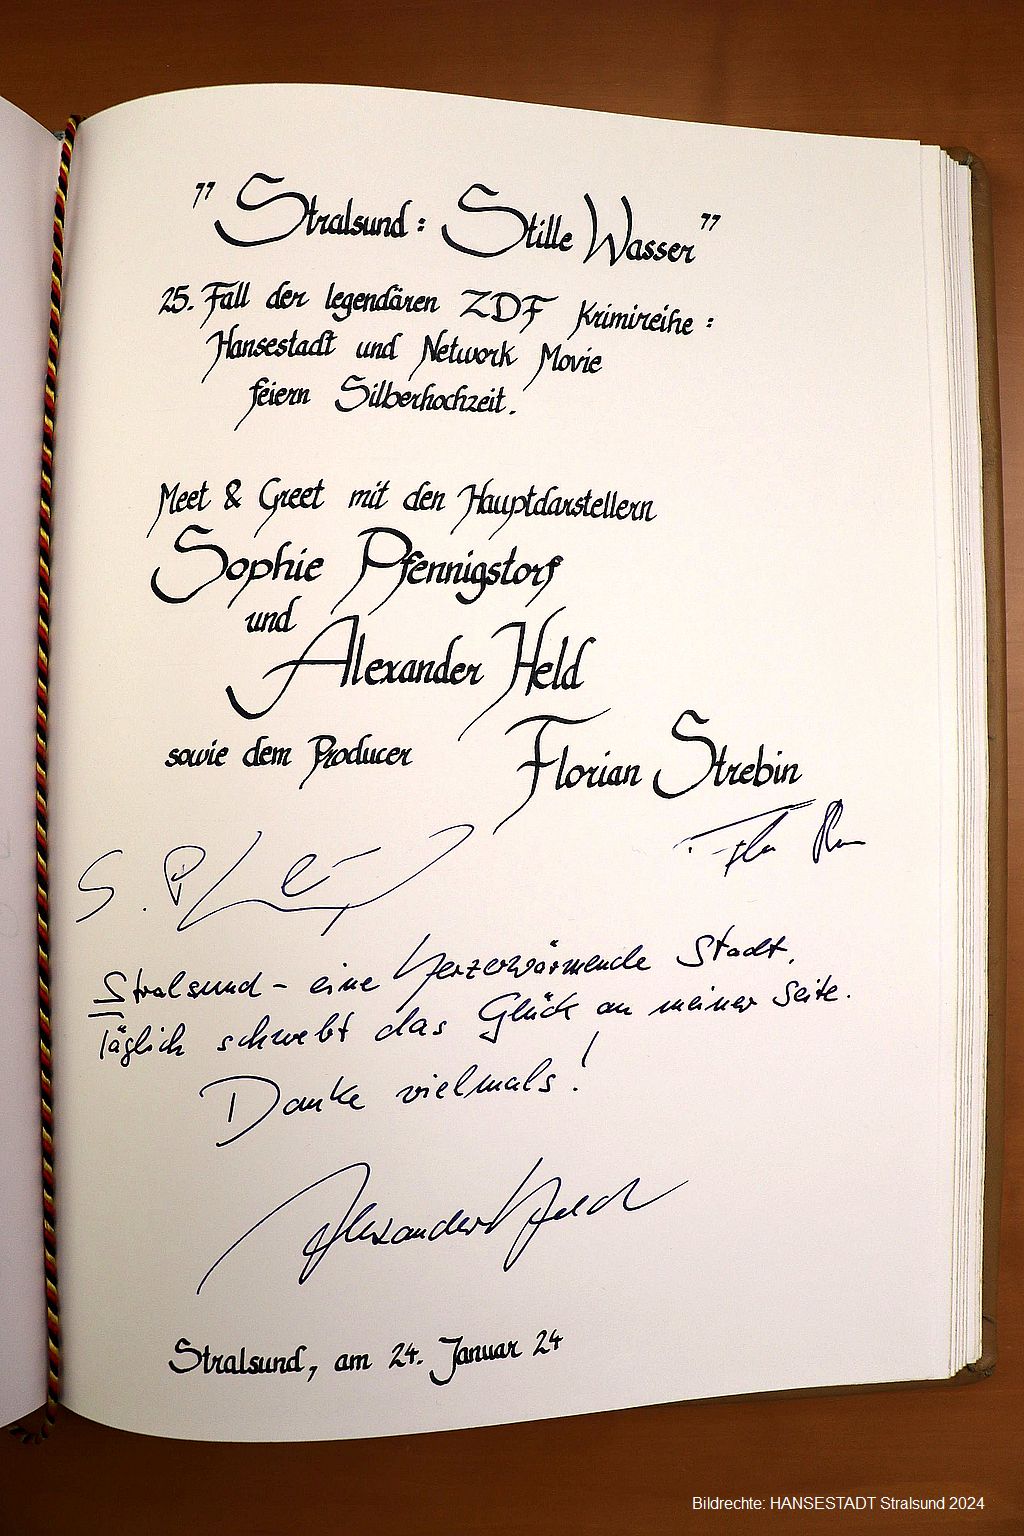 "Stralsund: Stille Wasser"
25. Fall der legendären ZDF Krimireihe:
Hansestadt und Network Movie
feiern Silberhochzeit.
Meet & Greet mit den Hauptdarstellern
Sophie Pfennigstorf
und
Alexander Held
sowie dem Producer Florian Strebin
Stralsund - eine herzerwärmende Stadt.
Täglich schwebt das Glück an meiner Seite.
Danke vielmals!
Alexander Held
Stralsund, am 24. Januar 24
Bildrechte: HANSESTADT Stralsund 2024